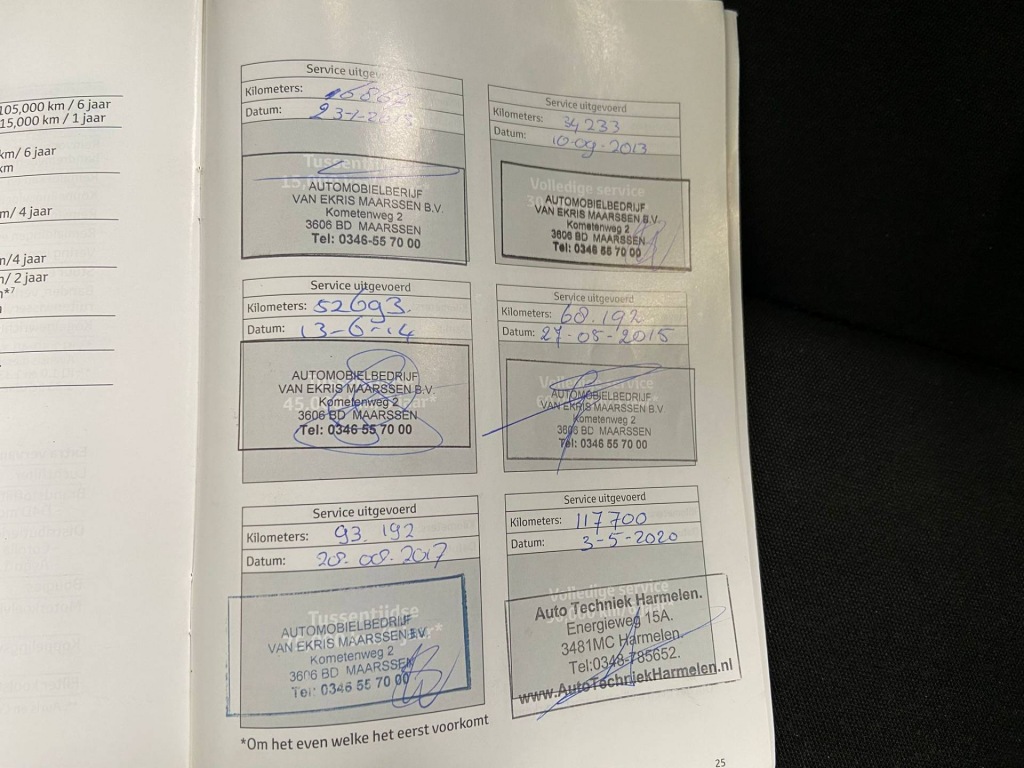 105,000 km / 6 jaar
15,000 km / 1 jaar
km/ 6 jaar
km
m/ 4 jaar
m/4 jaar
m/ 2 jaar
Service
Kilometers:
Datum: 23-1-2013
AUTOMOBIELBERIJF
VAN EKRIS MAARSSEN B.V.
Kometenweg 2
3606 BD MAARSSEN
Tel: 0346-55 70 00
Service uitgevoerd
Kilometers: 34233
Datum: 10-09-2013
Volledige service
AUTOMOBIELBEDRIJF
VAN EKRIS MAARSSEN B.V.
Kometenweg 2
3606 BD MAARSSEN
Tel: 0346 55 70 00
Service uitgevoerd
Kilometers: 52693.
Datum: 13-6-14
AUTOMOBIELBEDRIJF
VAN EKRIS MAARSSEN B.V.
Kometenweg 2
3606 BD MAARSSEN
Tel: 0346 55 70 00
Service uitgevoerd
Kilometers: 68.192
Datum: 27-05-2015
AUTOMOBIELBEDRIJF
VAN EKRIS MAARSSEN B.V.
Kometenweg 2
3606 BD MAARSSEN
Tel: 0346 55 70 00
Service uitgevoerd
Kilometers: 93.192
Datum: 28-08-2017
Tussentijdse
AUTOMOBIELBEDRIJF
VAN EKRIS MAARSSEN B.V.
Kometenweg 2
3606 BD MAARSSEN
Tel: 0346 55 70 00
Service uitgevoerd
Kilometers: 117700
Datum: 3-5-2020
Volledige service
Auto Techniek Harmelen.
Energieweg 15A.
3481MC Harmelen.
Tel:0348-785652.
www.AutoTechniekHarmelen.nl
*Om het even welke het eerst voorkomt
25